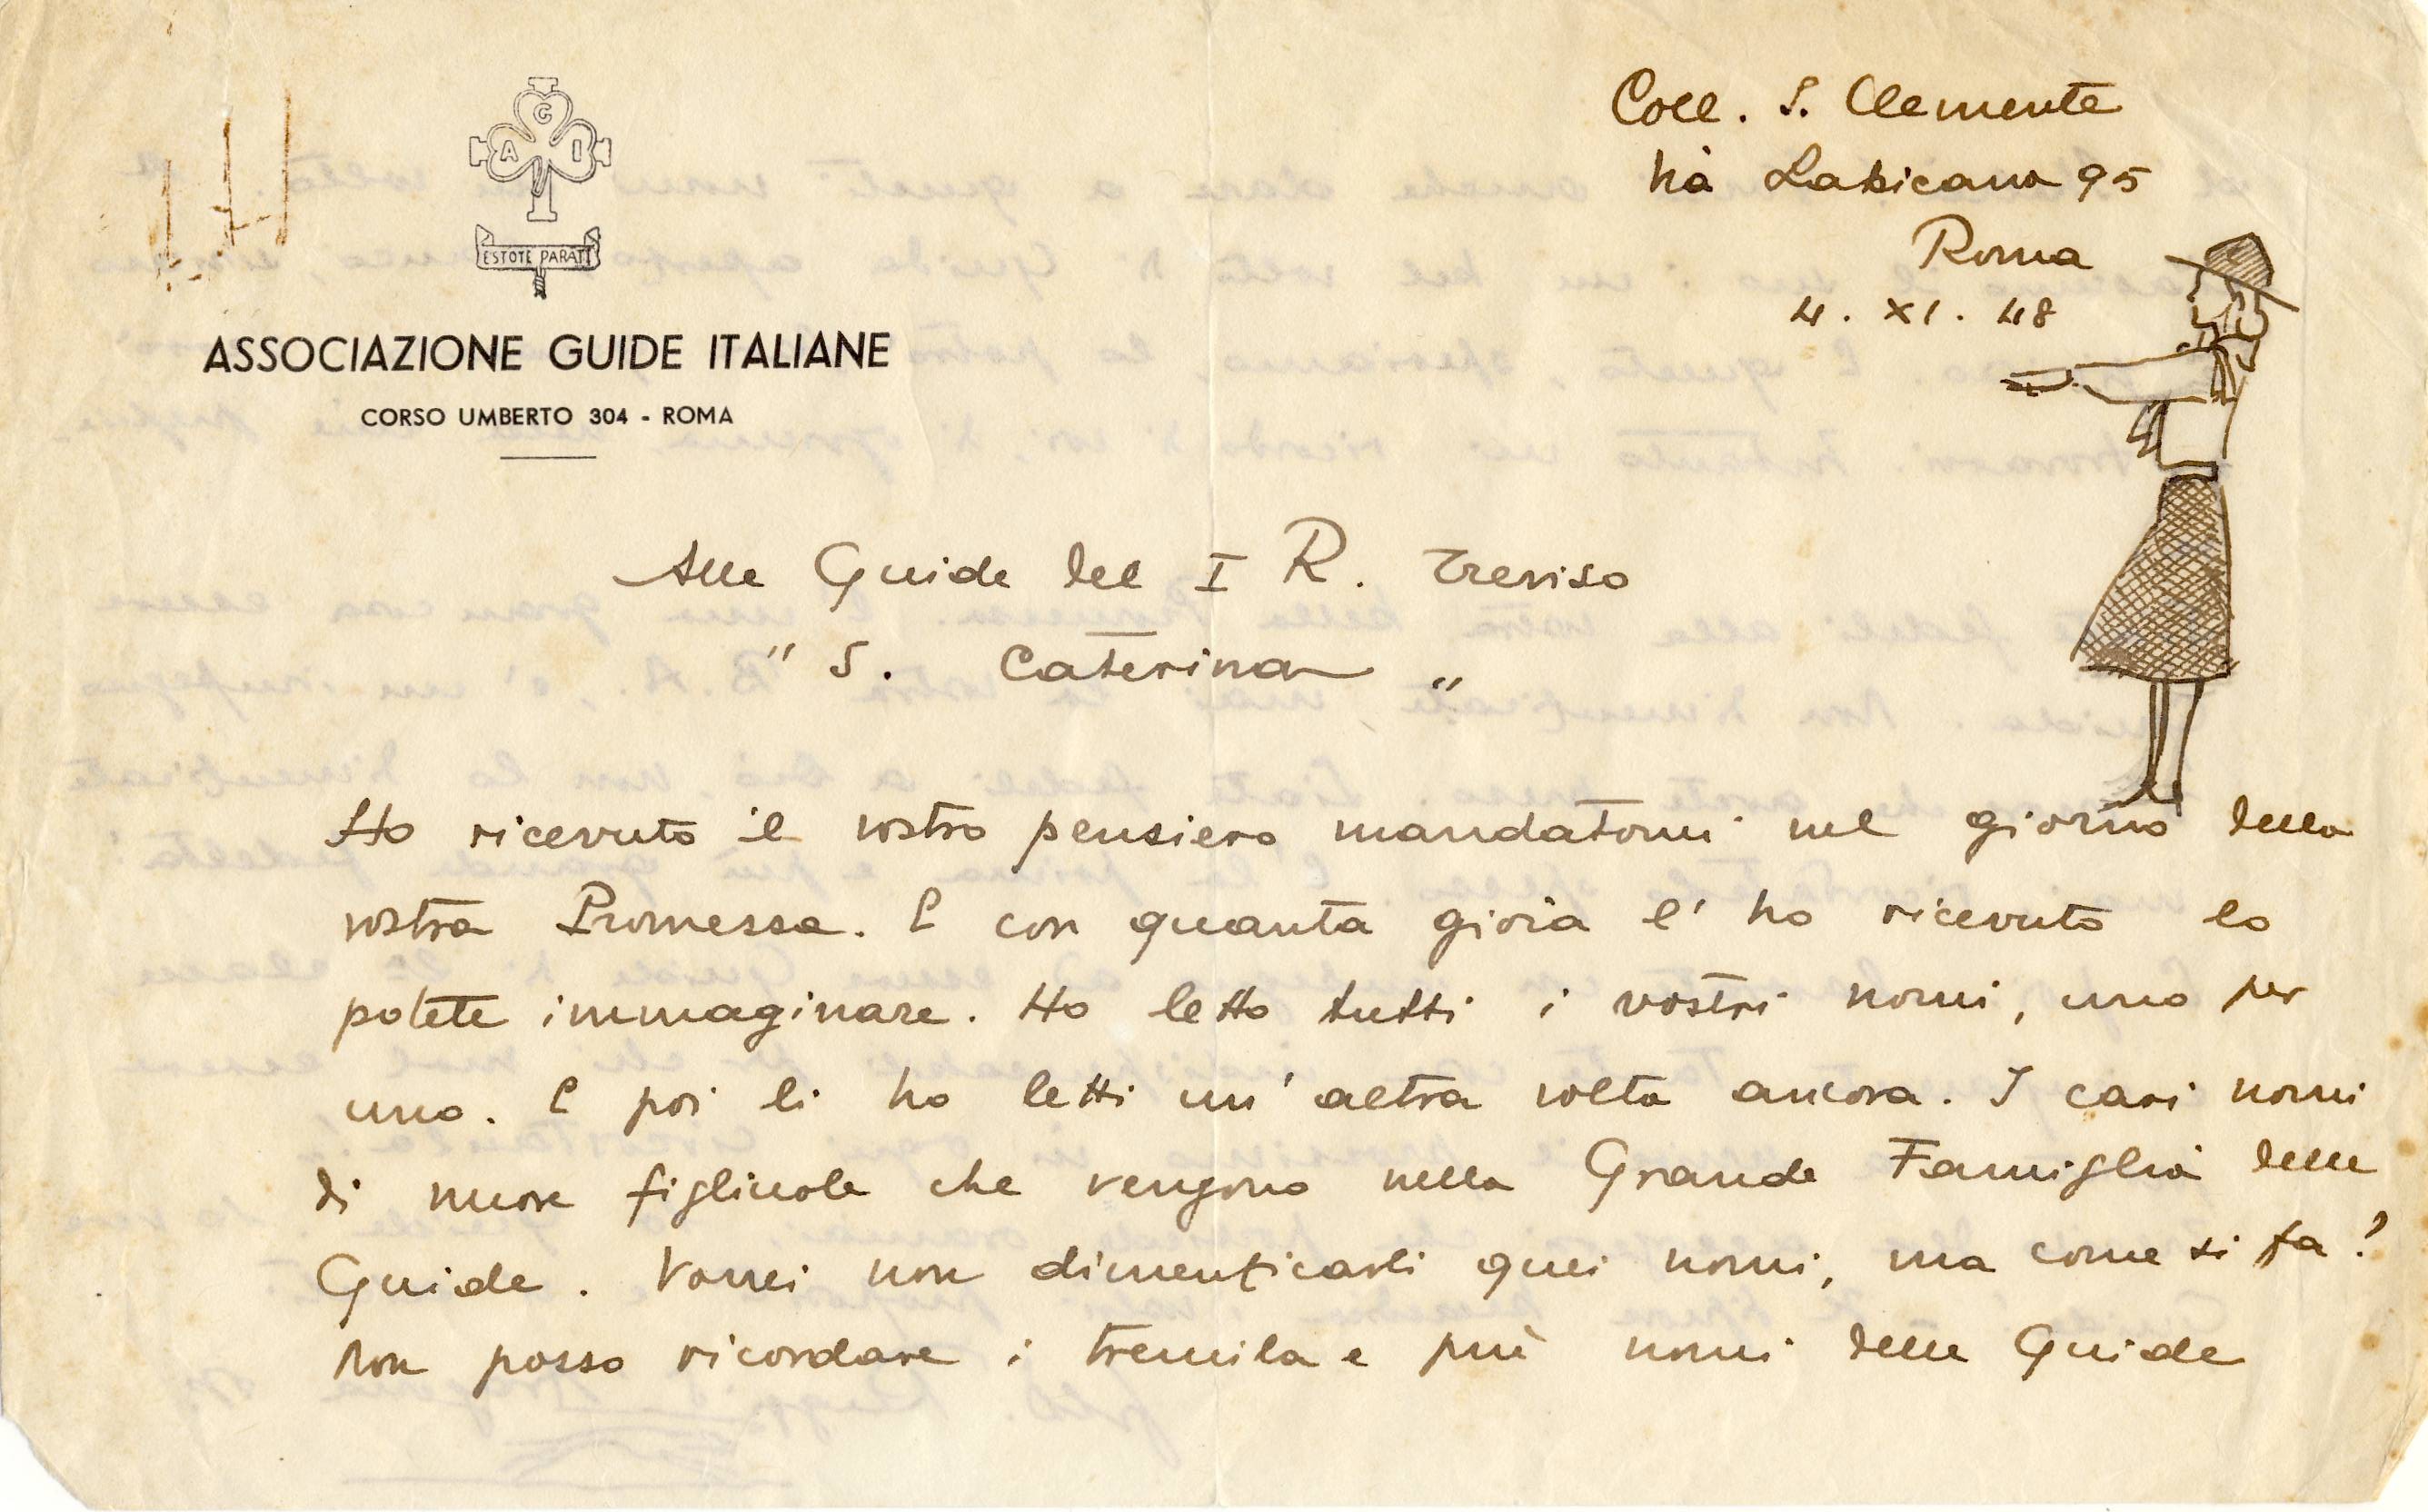 C
A I
ESTOTE PARATI
ASSOCIAZIONE GUIDE ITALIANE
CORSO UMBERTO 304 - ROMA
Coll. S. Clemente
Via Labicana 95
Roma
4. XI. 48
Alle Guide del I R. Treviso
" S. Caterina "
Ho ricevuto il vostro pensiero mandatomi nel giorno della
vostra Promessa. E con quanta gioia l'ho ricevuto lo
potete immaginare. Ho letto tutti i vostri nomi, uno per
uno. E poi li ho letti un'altra volta ancora. I cari nomi
di nuove figliuole che vengono nella Grande Famiglia delle
Guide. Vorrei non dimenticarli quei nomi, ma come si fa?
Non posso ricordare i tremila e più nomi delle Guide